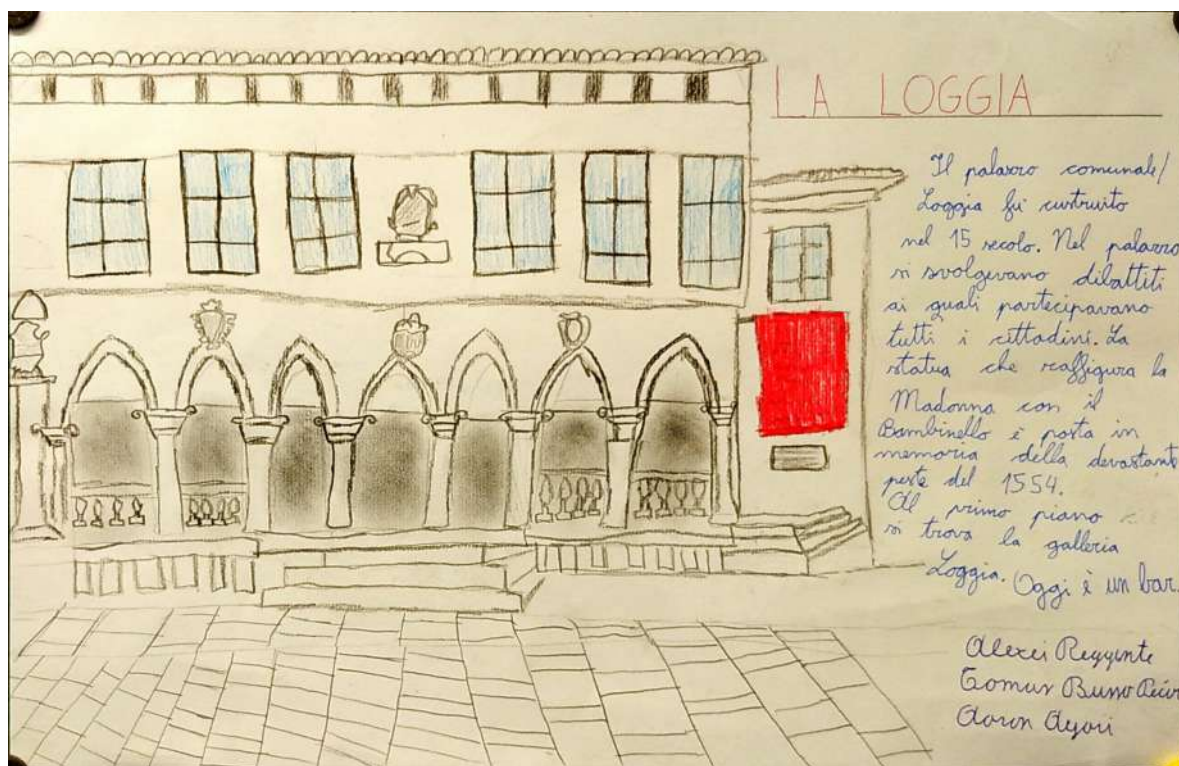 LA LOGGIA
Il palazzo comunale/
Loggia fu custruito
nel 15 secolo. Nel palazzo
si svolgevano dibattiti
ai quali partecipavano
tutti i cittadini. La
statua che raffigura la
Madonna con il
Bambinello è posta in
memoria della devastante
peste del 1554.
Al primo piano
si trova la galleria
Loggia. Oggi è un bar.
Alexei
Aaron